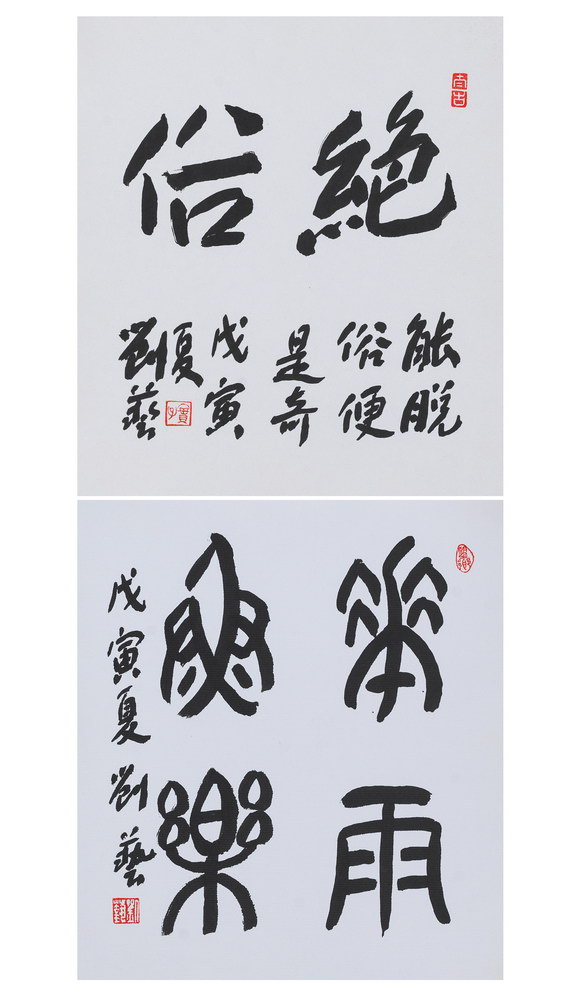 絕俗
能脫
俗便
是奇
戊寅
夏
劉藝
華雨
樂
戊寅夏劉藝
劉藝